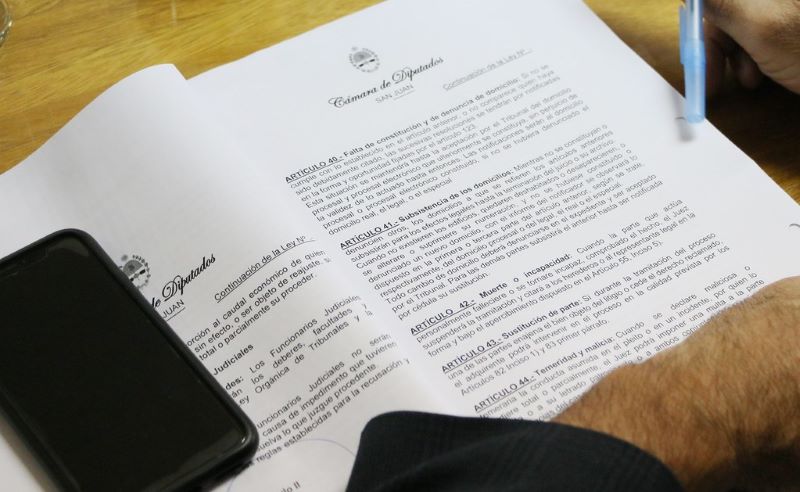 Cámara de Diputados
SAN JUAN
Continuación de la Ley Nº
ARTÍCULO 40.- Falta de constitución y de denuncia de domicilio: Si no se
cumple con lo establecido en el artículo anterior, o no comparece quien haya
sido debidamente citado, las sucesivas resoluciones se tendrán por notificadas
en la forma y oportunidad fijadas por el artículo 123.
Esta situación se mantendrá hasta la aceptación por el Tribunal del domicilio
procesal y procesal electrónico que se constituya, sin perjuicio de
la validez de lo actuado hasta entonces. Las notificaciones serán al domicilio
procesal o procesal electrónico constituido, si no se hubiera denunciado el
domicilio real, el legal, o el especial.
ARTÍCULO 41.- Subsistencia de los domicilios: Mientras no se constituyan o
denuncien otros, los domicilios a que se refieren los artículos anteriores
subsistirán para los efectos legales hasta la terminación del juicio o su archivo.
Cuando no existieren los edificios, quedaren deshabitados o desaparecieren, o
se alterare o suprimiere su numeración, y no se hubiere constituido o
denunciado un nuevo domicilio, con el informe del notificador se observará lo
dispuesto en la primera o tercera parte del artículo anterior, según se trate
respectivamente, del domicilio procesal o del legal, el real o el especial.
Todo cambio de domicilio deberá denunciarse en el expediente y ser aceptado
por el Tribunal. Para las demás partes subsistirá el anterior hasta ser notificada
por cédula su sustitución.
ARTÍCULO 42.- Muerte o incapacidad: Cuando la parte que actúa
personalmente falleciere o se tornare incapaz, comprobado el hecho, el Juez
suspenderá la tramitación y citará a los herederos o al representante legal en la
forma y bajo el apercibimiento dispuesto en el Artículo 55, Inciso 5).
ARTÍCULO 43.- Sustitución de parte: Si durante la tramitación del proceso
una de las partes enajena el bien objeto del litigio o cede el derecho reclamado,
el adquirente podrá intervenir en el proceso en la calidad prevista por los
Artículos 82 Inciso 1) y 83 primer párrafo.
ARTÍCULO 44.- Temeridad y malicia: Cuando se declare maliciosa o
temeraria la conducta asumida en el pleito o en un incidente, por quien lo
pierde total o parcialmente, el Juez podrá imponer una multa a la parte
o a su letrado
de Diputados
JUAN
Continuación de la Ley Nº
orción al caudal económico de quien
sin efecto, o ser objeto de reajuste si
total o parcialmente su proceder.
Judiciales
des: Los Funcionarios Judiciales
rán los deberes, facultades y
ey Orgánica de Tribunales y la
Funcionarios Judiciales no serán
causa de impedimento que tuvieren
suelva lo que juzgue procedente.
reglas establecidas para la recusación y
lo II